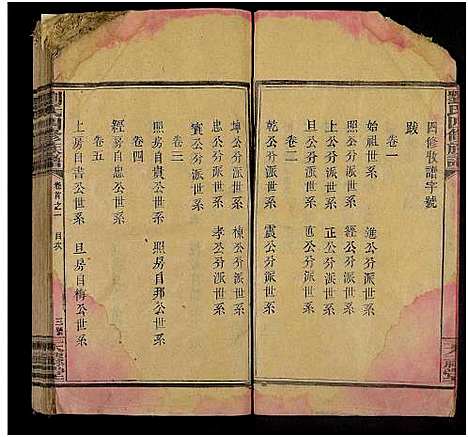 劉氏四修族譜
四修收譜字號
跋
卷一
始祖世系 進公分派世系
照公分派世系 經公分派世系
上公分派世系 正公分派世系
旦公分派世系
卷二
乾公分派世系 震公分派世系
坤公分派世系 棟公分派世系
寅公分派世系 孝公分派世系
卷三
熙房自貴公世系 熙房自邦公世系
卷四
經房自忠公世系
卷五
上房自書公世系 旦房自梅公世系
劉氏四修族譜
卷首之一
目次
三